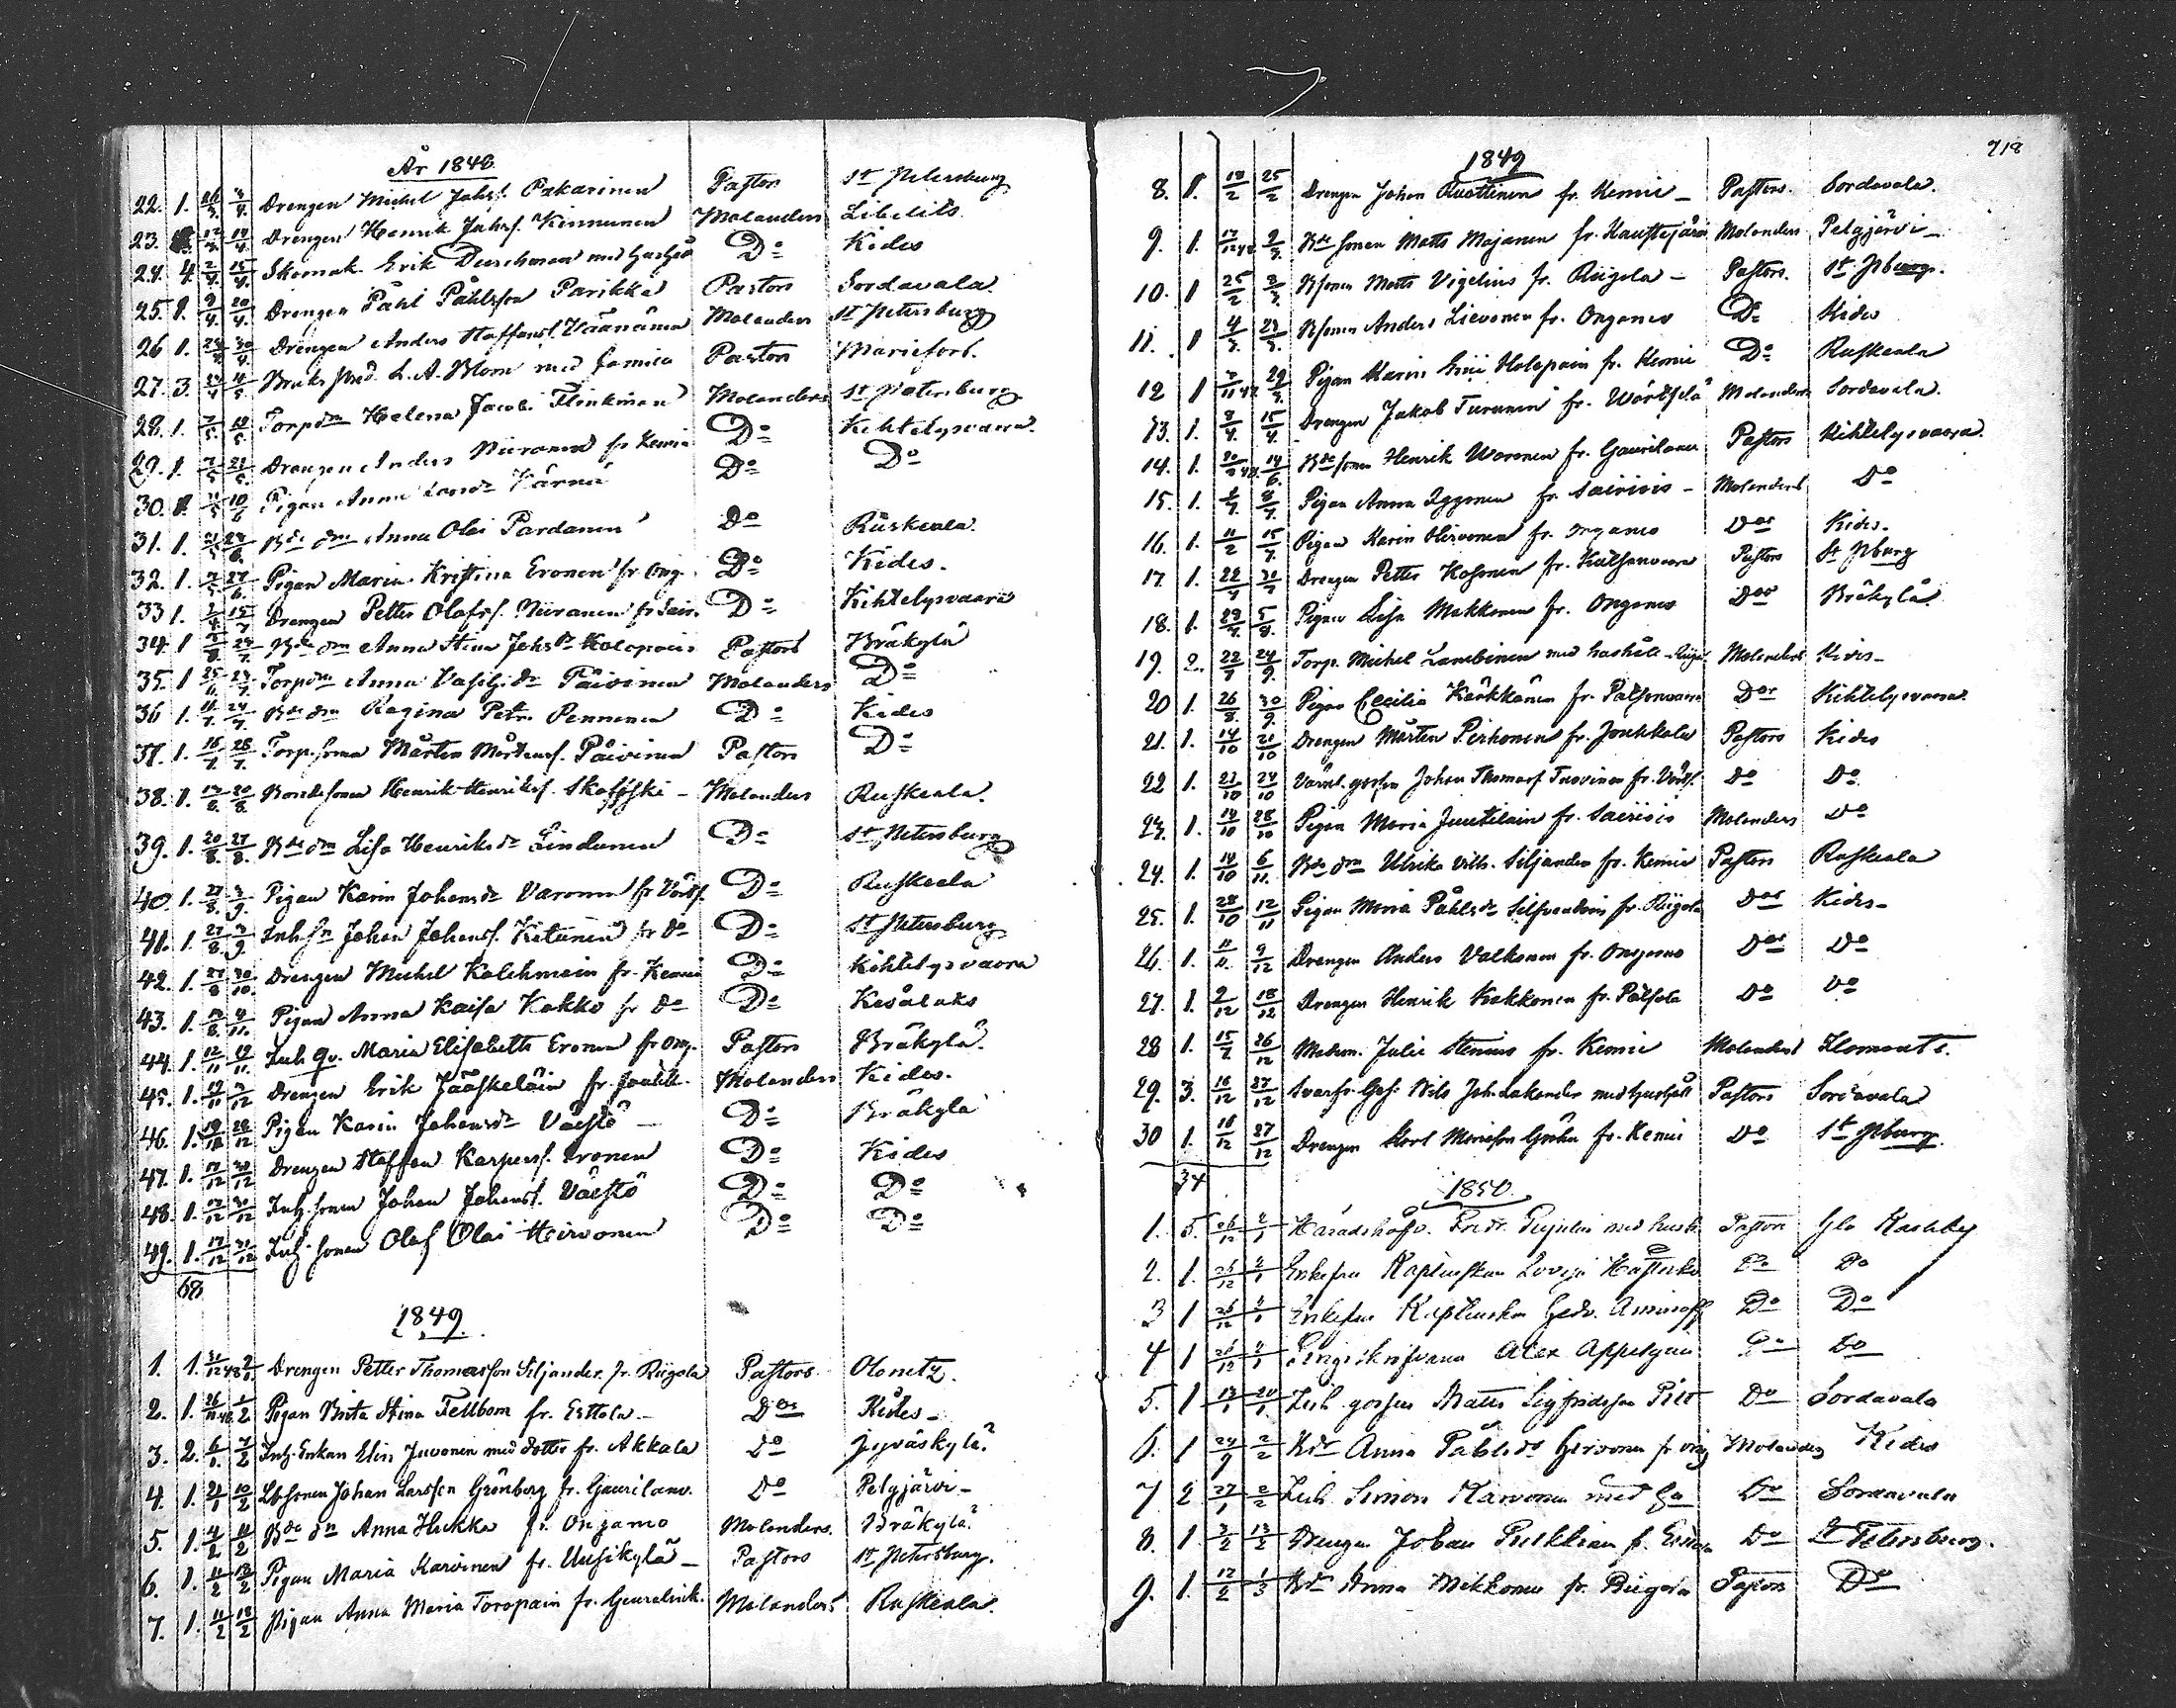 År 1848
22. 1. 26/3. 3/4. Drengen Michel Johsf. Pekarinen Pastors St Petersburg
23. 12/3. 14/4. Drengen Henrik Johsf. Kinnunen Molanders Libelits
24. 4. 2/4. 15/4. Skomak. Erik med hushåll Do Kides
25. 1. 9/4. 20/4. Drengen Påhl Påhlsson Parikka Pastors Sordavala
26 1. 24/4. 30/4. Drengen Anders Staffansf. Väänänen Molanders St Petersburg
27. 3. 4/5. Bruks L. A. Blom med familie Pastors Mariefors.
28. 1. 7/5. 14/5. Torpdn Helena Jacobi Flinkman Molanders St Petersburg
29. 1. 7/5. 21/5. Drengen Anders Niiranen fr Kemie Do Kihtelysvaara.
30. 10/6 Pigan Anna Kärnä Do Do
31. 1. 21/5 24/6. Bde dn Anna Olai Pardanen Do Ruskeala.
32. 1. 27/6. Pigan Maria Kristina Eronen fr. Ong. Do Kides.
33 1. 15/7 Drengen Petter Olofsf. Niiranen fr Sair. Do Kihtelysvaara
34. 1 29/7. Bde dn Anna Stina Johsdr Holopain Pastors Bräkylä
35. 1 25/6 29/7. Torpdn Anna Vasilidr Päivinen Molanders Do
36 1. 24/7. Bde dn Regina Petri Pennanen Do Kides
37. 1. 16/7. 28/7. Torp. sonen Mårten Mårtensf. Päivinen Pastors Do
38. 1. 14/8. 20/8. Bondesonen Henrik Henriksf. Skoffski - Molanders Ruskeala.
39. 1. 20/8. 27/8. Bde dn Lisa Henriksdr Lindunen Do St Petersburg
40. 1. 27/8. 3/9. Pigan Karin Johansdr Varonen fr Värts. Do Ruskeala
41. 1. 27/8. 3/9. Inh. sn Johan Johansf. Kitunen fr do Do St Petersburg
42. 1. 27/8 30/10. Drengen Michel Kolehmain fr. Kemie Do Kihtelysvaara
43. 1. 4/11. Pigan Anna Kaisa Kokko fr do Do Kesälaks
44. 1. 12/11 19/11. Inh. qv. Maria Elisabeth Eronen fr Ong. Pastors Bräkylä
45. 1. 19/11 3/12 Drengen Erik Jääskeläin fr. Joukk. Molanders Kides.
46. 1. 28/12 Pigan Karin Johansdr Väestö - Do Bräkylä
47. 1. 17/12 30/12 Drengen Staffan Karpersf. Eronen Do Kides
48. 1. 17/12 30/12 Inh. sonen Johan Johansf. Väestö Do Do
49. 1. 17/12 31/12 Inh. sonen Olof Olai Heirvonen Do Do
68
1849
1. 1. 31/12 48 Drengen Petter Thomasson Siljander fr. Riigola Pastors Olonetz.
2. 1. 26/11 48 1/2 Pigan Brita Stina Fellbom fr. Erttola - Dos Kides -
3. 2. 6/1. 7/2 Inh. Enkan Elin Juvonen med dotter fr. Akkala Do Jyväskylä
4. 1. 21/1 10/2 Lbsonen Johan Larsson Grönberg fr. Gaurilanv. Do Pelgjärvi -
5. 1. 4/2 11/2 Bde dn Anna Hukka fr. Onjamo Molanders. Bräkylä
6. 1. 11/2 18/2 Pigan Maria Karvinen fr. Uusikylä - Pastors St Petersburg.
7. 1. 11/2 18/2 Pigan Anna Maria Toropain fr. Molanders Ruskeala.
718
1849
8. 1. 18/2 25/2 Drengen Johan Ruottinen fr. Kemie - Pastors. Sordavala.
9. 1. 17/12 48 2/3. Bde sonen Matts Majanen fr. Molanders Pelgjärvi -
10. 1 25/2 3/3. Bsonen Matts Vigelius fr. Riigola - Pastors. St Pburg.
11. 1 4/3. 23/3. Bsonen Anders Lievonen fr. Onganes Do Kides
12 1 29/3. Pigan Karin Holopain fr. Kemie Do Ruskeala
13. 1. 8/4. 15/4. Drengen Jakob Turunen fr. Wärtsilä Molanders Sordavala.
14. 1. 14/6. Bde sonen Henrik Woronen fr. Gaurilanv Pastors Kihtelysvaara.
15. 1. 8/7. Pigan Anna Iggonen fr. Sairiois - Molanders Do
16. 1. 11/2 15/7. Pigan Karin Hirvonen fr. Onganes Dos Kides.
17 1. 22/7 31/7 Drengen Petter Kosonen fr. Pastors St Pburg
18. 1. 29/7. 5/8. Pigan Lisa Makkonen fr. Onganes Dos Bräkylä
19. 2. 22/7 24/9. Torp. Michel Lambinen med hushåll - Riigol Molanders Kides -
20 1. 26/8. 30/9. Pigan Cecilia Kärkkänen fr. Patsonvaara Dos Kihtelysvaara
21. 1. 14/10 21/10 Drengen Mårten Pirhonen fr. Joukkola Pastors Kides
22 1. 21/10 24/10 gossen Johan Thomasf Tuovinen fr. Värts. Do Do
23. 1. 14/10 28/10 Pigan Maria Juutilain fr. Sairiois Molanders Do
24. 1. 14/10 6/11. Bde dn Ulrika Vilh. Siljander fr. Kemie Pastors Ruskeala
25. 1. 28/10 12/11 Pigan Maria Påhlsdr fr. Riigola Dos Kides -
26. 1. 11/11. 9/12 Drengen Anders Valkonen fr. Onganes Dos Do
27. 1. 9/12 18/12 Drengen Henrik Kakkonen fr. Pälsola Do Do
28 1. 15/7 26/12 Julie Stenius fr. Kemie Molanders Ilomants.
29. 3. 16/12 27/12 Nils Joh. Lakander med hushåll Pastors Sordavala
30 1. 16/12 27/12 Drengen Karl fr. Kemie Do St Pburg.
34
1850.
1. 5. 26/12 Häradshöfd. Fredr. med hush. Pastors Gla Karleby
2. 1. 26/12 Enkefru Kaptenskan Lovisa Do Do
3 1 26/12 Enkefru Kaptenskan Hedv. Aminoff Do Do
4 1 26/12 Alex Appelgren Do Do
5. 1 13/1 20/1 Inh gossen Matts Sigfridsson Pitt Do Sordavala
6. 1 2/2 Bdr Anna Påhlsdr Hirvonen fr Ong Molanders Kides
7 2 27/1 2/2 Inh. Simon Karvonen med Do Sordavala
8. 1 3/2 13/2 Drengen Johan fr. Do St Petersburg.
9. 1. 12/2 1/3 Bdr Anna Mikkonen fr. Riigola Pastors Do